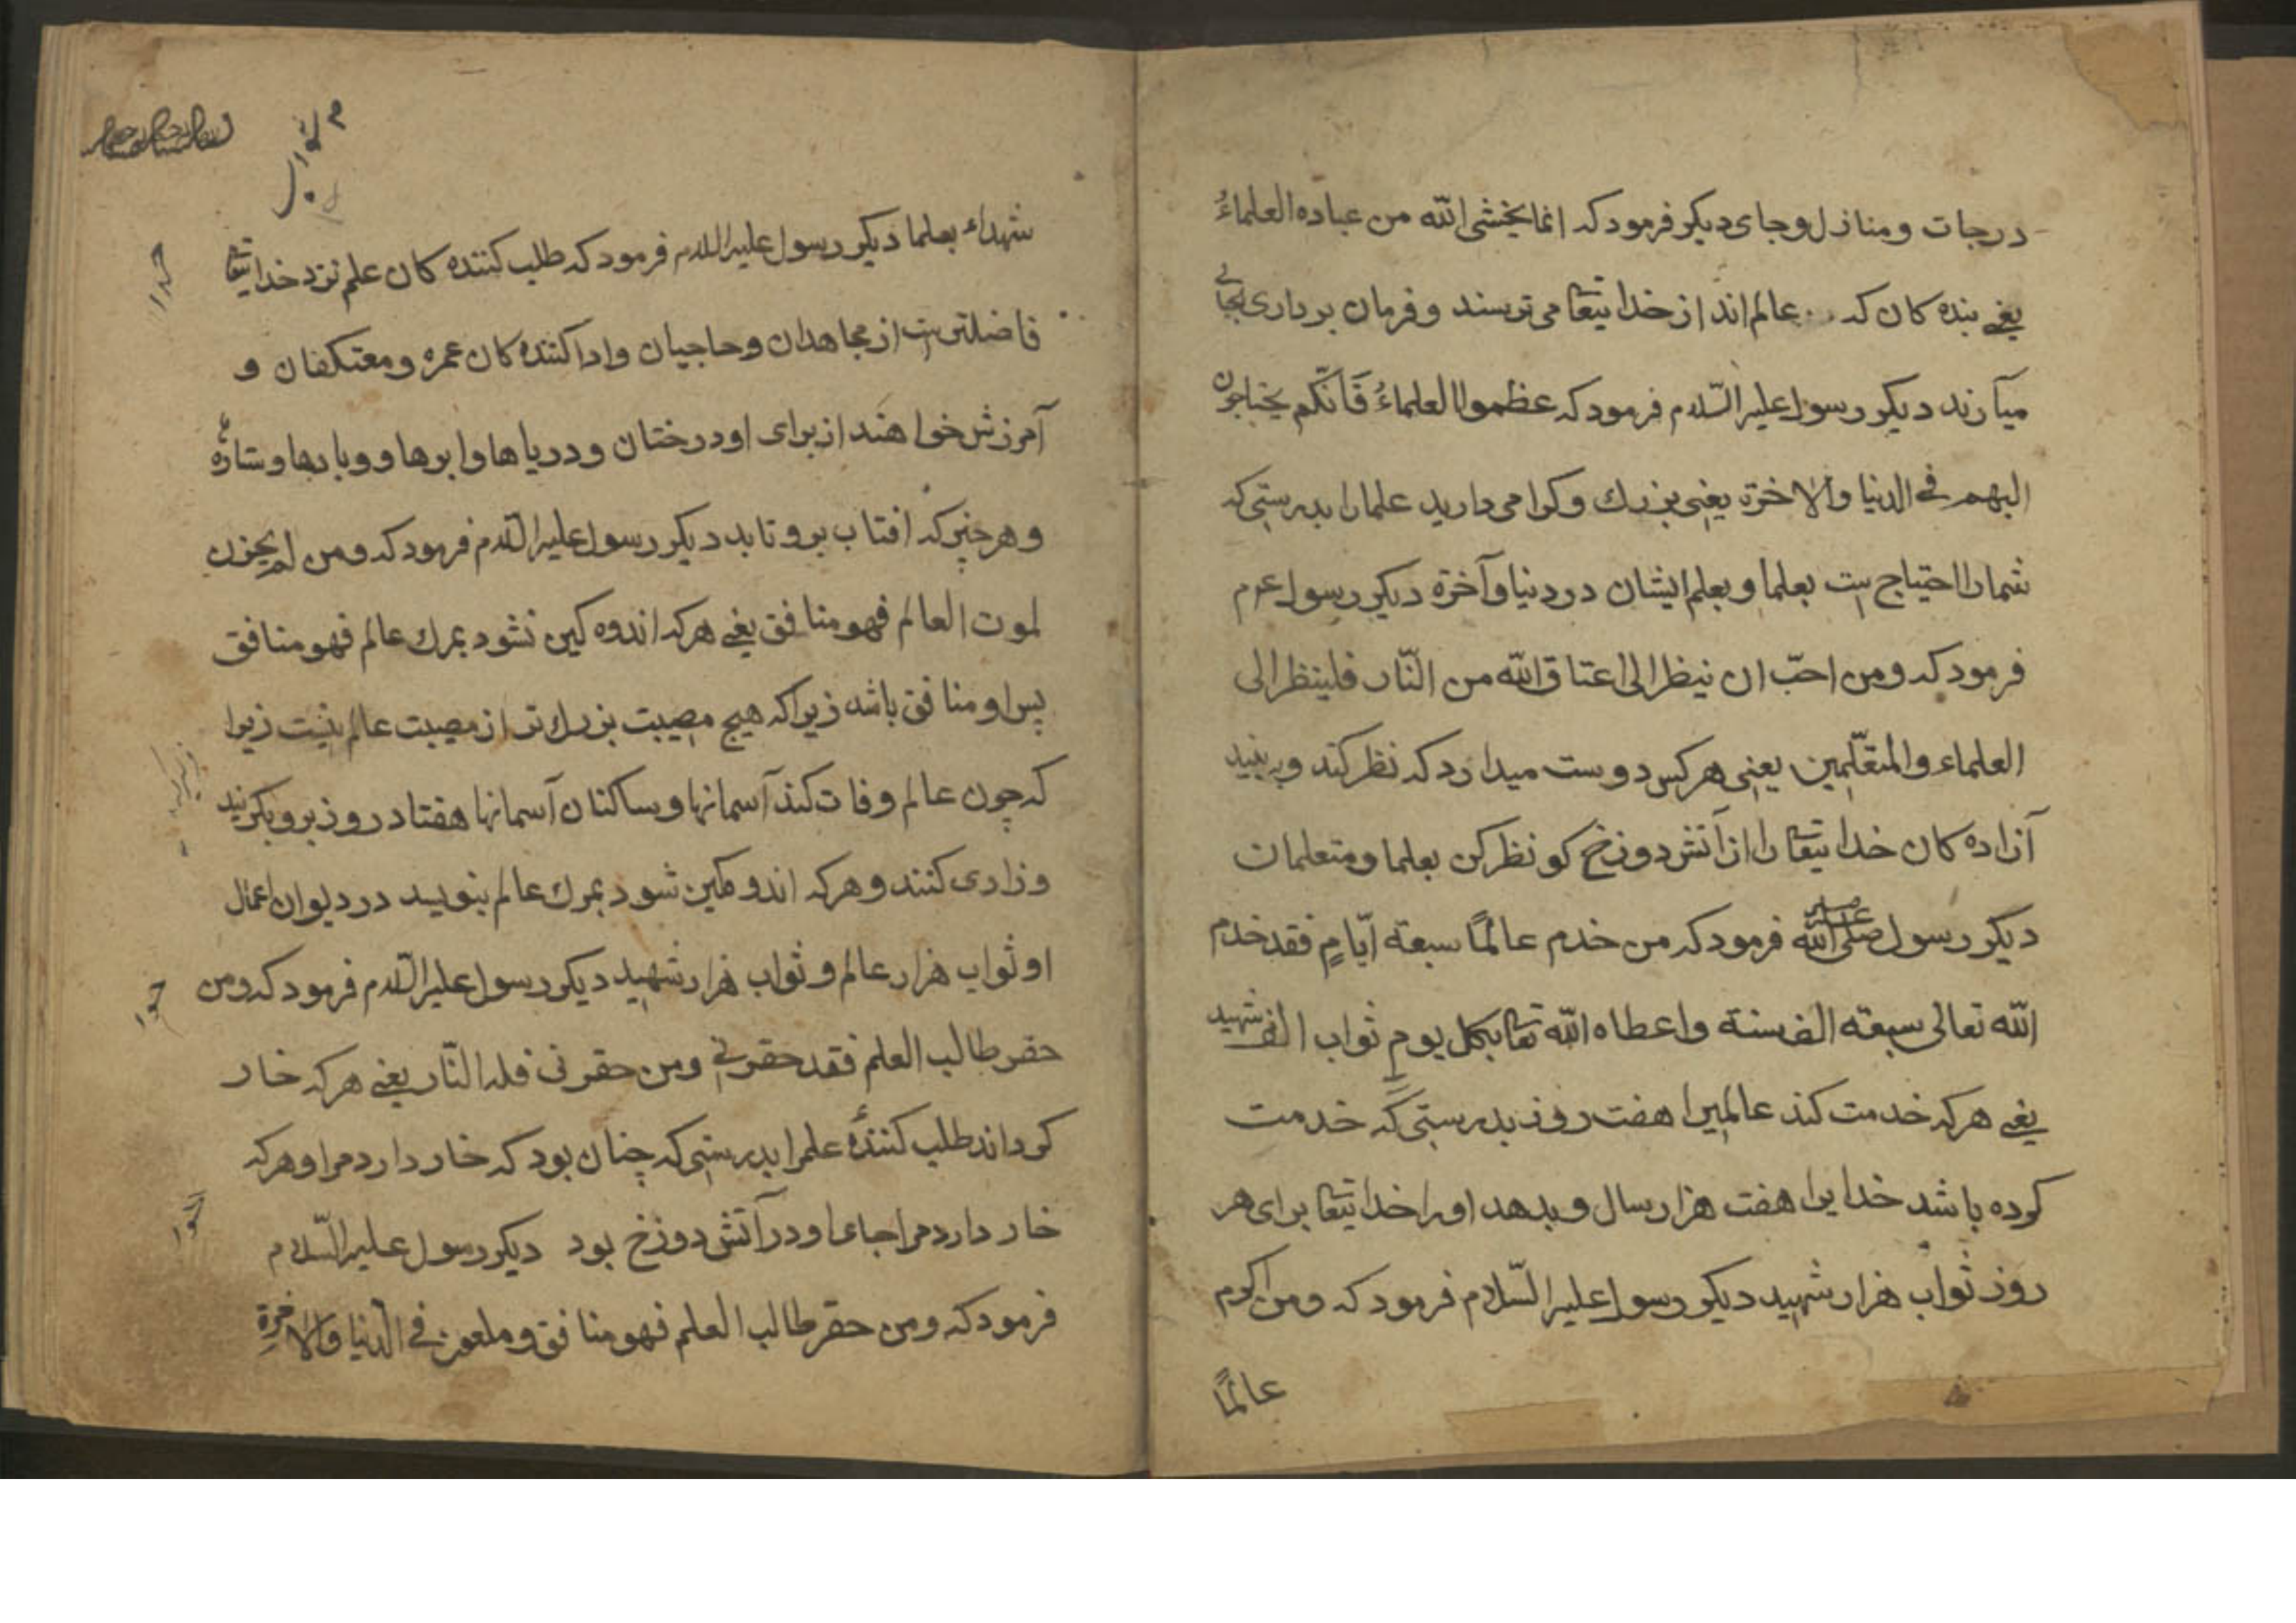 درجات و منازل و جای دیکر فرمود که انما یخشی الله من عباده العلماءُ
یعنی بنده کان که عالم اند از خدا تیعا می ترسند و فرمان برداری بجای
میآرند دیکر رسول علیه السّلام فرمود که عظموا العلماءُ فَانّکم یحتاجون
الیهم فی الدنیا والاخرة یعنی بزرك و کرامی دارید علمارا بدرستی که
شمارا احتیاج ست بعلما و بعلم ایشان در دنیا و آخرة دیکر رسول عم
فرمود که ومن احبّ ان ینظر الی اعتاق الله من النّار فلینظر الی
العلماء والمتعلّمین یعنی هر کس دوست میدارد که نظر کند و به بیند
آزاده کان خدا تیعا را از آتش دوزخ کو نظر کن بعلما و متعلمان
دیکر رسول صلی الله علیه فرمود که من خدم عالمًا سبعة ایّامٍ فقد خدم
الله تعالی سبعة الف سنة واعطاه الله تعا بکل یومٍ ثواب الف شهید
یعنی هر که خدمت کند عالمیرا هفت روز بدرستی که خدمت
کرده باشد خدایرا هفت هزار سال و بدهد اورا خدا تیعا برای هر
روز ثواب هزار شهید دیکر رسول علیه السّلام فرمود که ومن اکرم
عالمًا
شهداء بعلما دیکر رسول علیه السلام فرمود که طلب کننده کان علم نزد خدا تیعا
فاضلترست از مجاهدان و حاجیان و ادا کننده کان عمره و معتکفان و
آمرزش خواهند از برای او درختان و دریاها و ابرها و و بادها و ستارهٔ
و هر چیز که افتاب برو تابد دیکر رسول علیه السّلام فرمود که ومن لم یحزن
لموت العالم فهو منافق یعنی هر که اندوه کین نشود بمرك عالم فهو منافق
پس او منافق باشد زیرا که هیچ مصیبت بزرك تر از مصیبت عالم نیست زیرا
که چون عالم وفات کند آسمانها و ساکنان آسمانها هفتاد روز برو بکریند
و زاری کنند و هر که اندوهکین شود بمرك عالم بنویسد در دیوان اعمال
او ثواب هزار عالم و ثواب هزار شهید دیکر رسول علیه السّلام فرمود که ومن
حقر طالب العلم فقد حقرنی ومن حقرنی فله النّار یعنی هر که خار
کرداند طلب کنندهٔ علمرا بدرستی که چنان بود که خار دارد مرا و هر که
خار دارد مرا جای او در آتش دوزخ بود دیکر رسول علیه السّلام
فرمود که ومن حقر طالب العلم فهو منافق و ملعون فی الدّنیا والاخرة